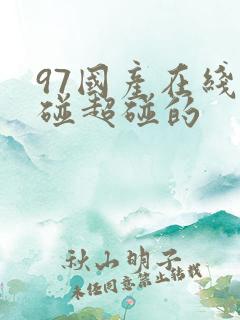 97國產在綫
碰超碰的
秋山明子
未任同意禁止转载